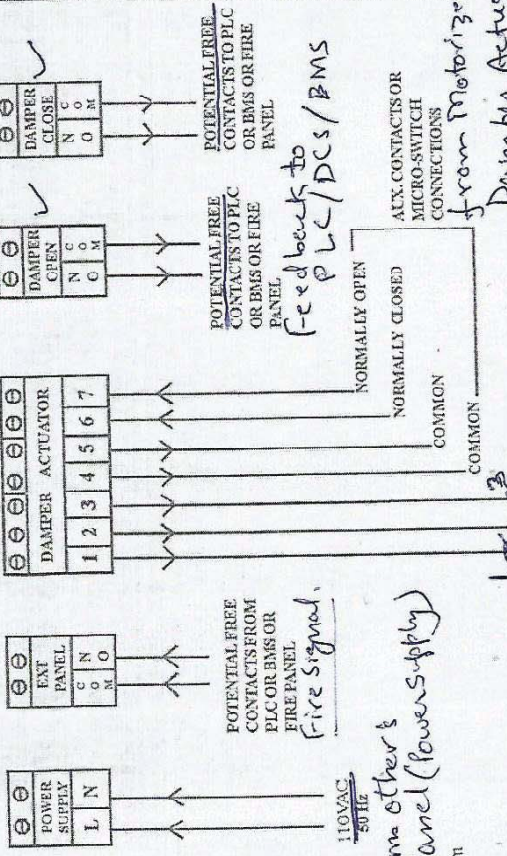 POWER
SUPPLY
L N
110VAC
50 Hz
other's
(Power supply)
EXT
PANEL
C
O
M
N
O
POTENTIAL FREE
CONTACTS FROM
PLC OR BMS OR
FIRE PANEL
Fire signal.
DAMPER ACTUATOR
1 2 3 4 5 6 7
NORMALLY OPEN
NORMALLY CLOSED
COMMON
COMMON
AUX. CONTACTS OR
MICRO-SWITCH
CONNECTIONS
from Motorize
Damper Actu
DAMPER
OPEN
N
O
C
O
M
POTENTIAL FREE
CONTACTS TO PLC
OR BMS OR FIRE
PANEL
Feedback to
PLC/DCS/BMS
DAMPER
CLOSE
N
O
C
O
M
POTENTIAL FREE
CONTACTS TO PLC
OR BMS OR FIRE
PANEL